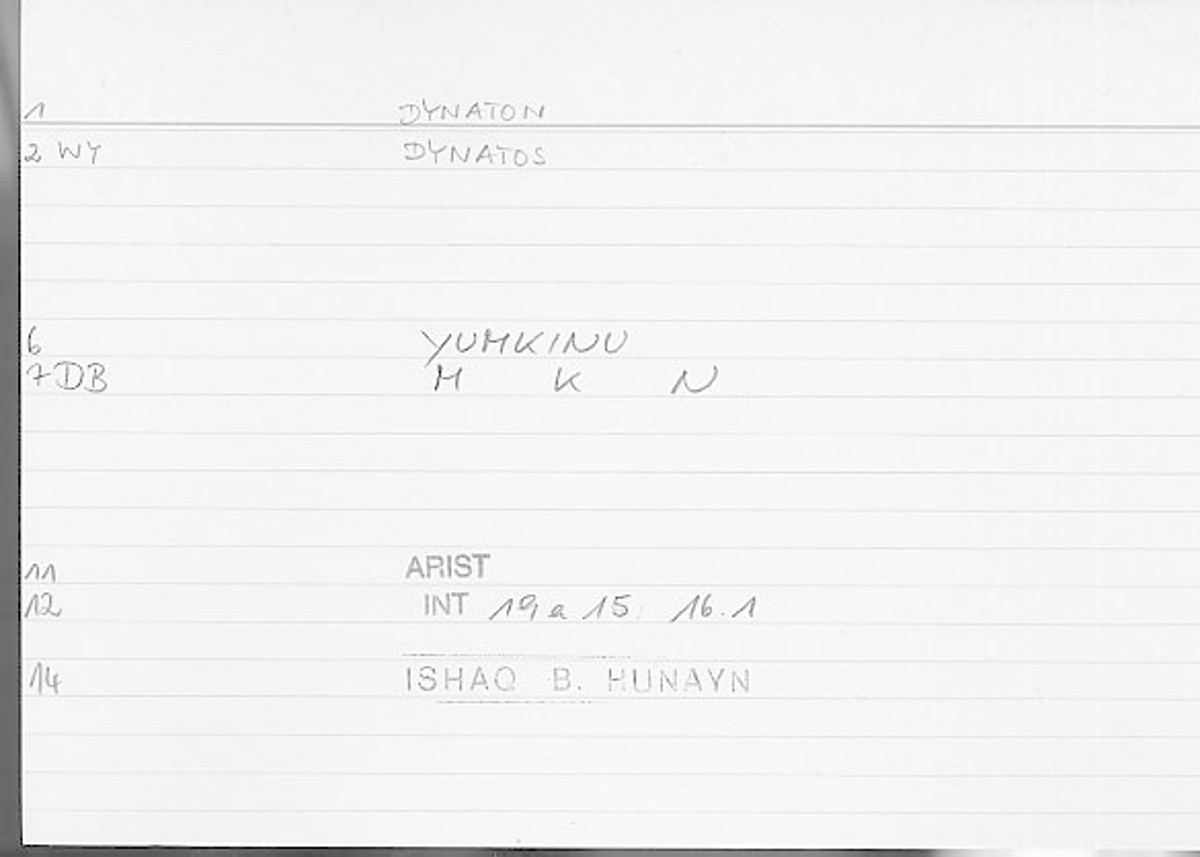 1 DYNATON
2 WY DYNATOS
6 YUMKINU
7 DB M K N
11 ARIST
12 INT 19 a 15, 16.1
14 ISHAQ B. HUNAYN